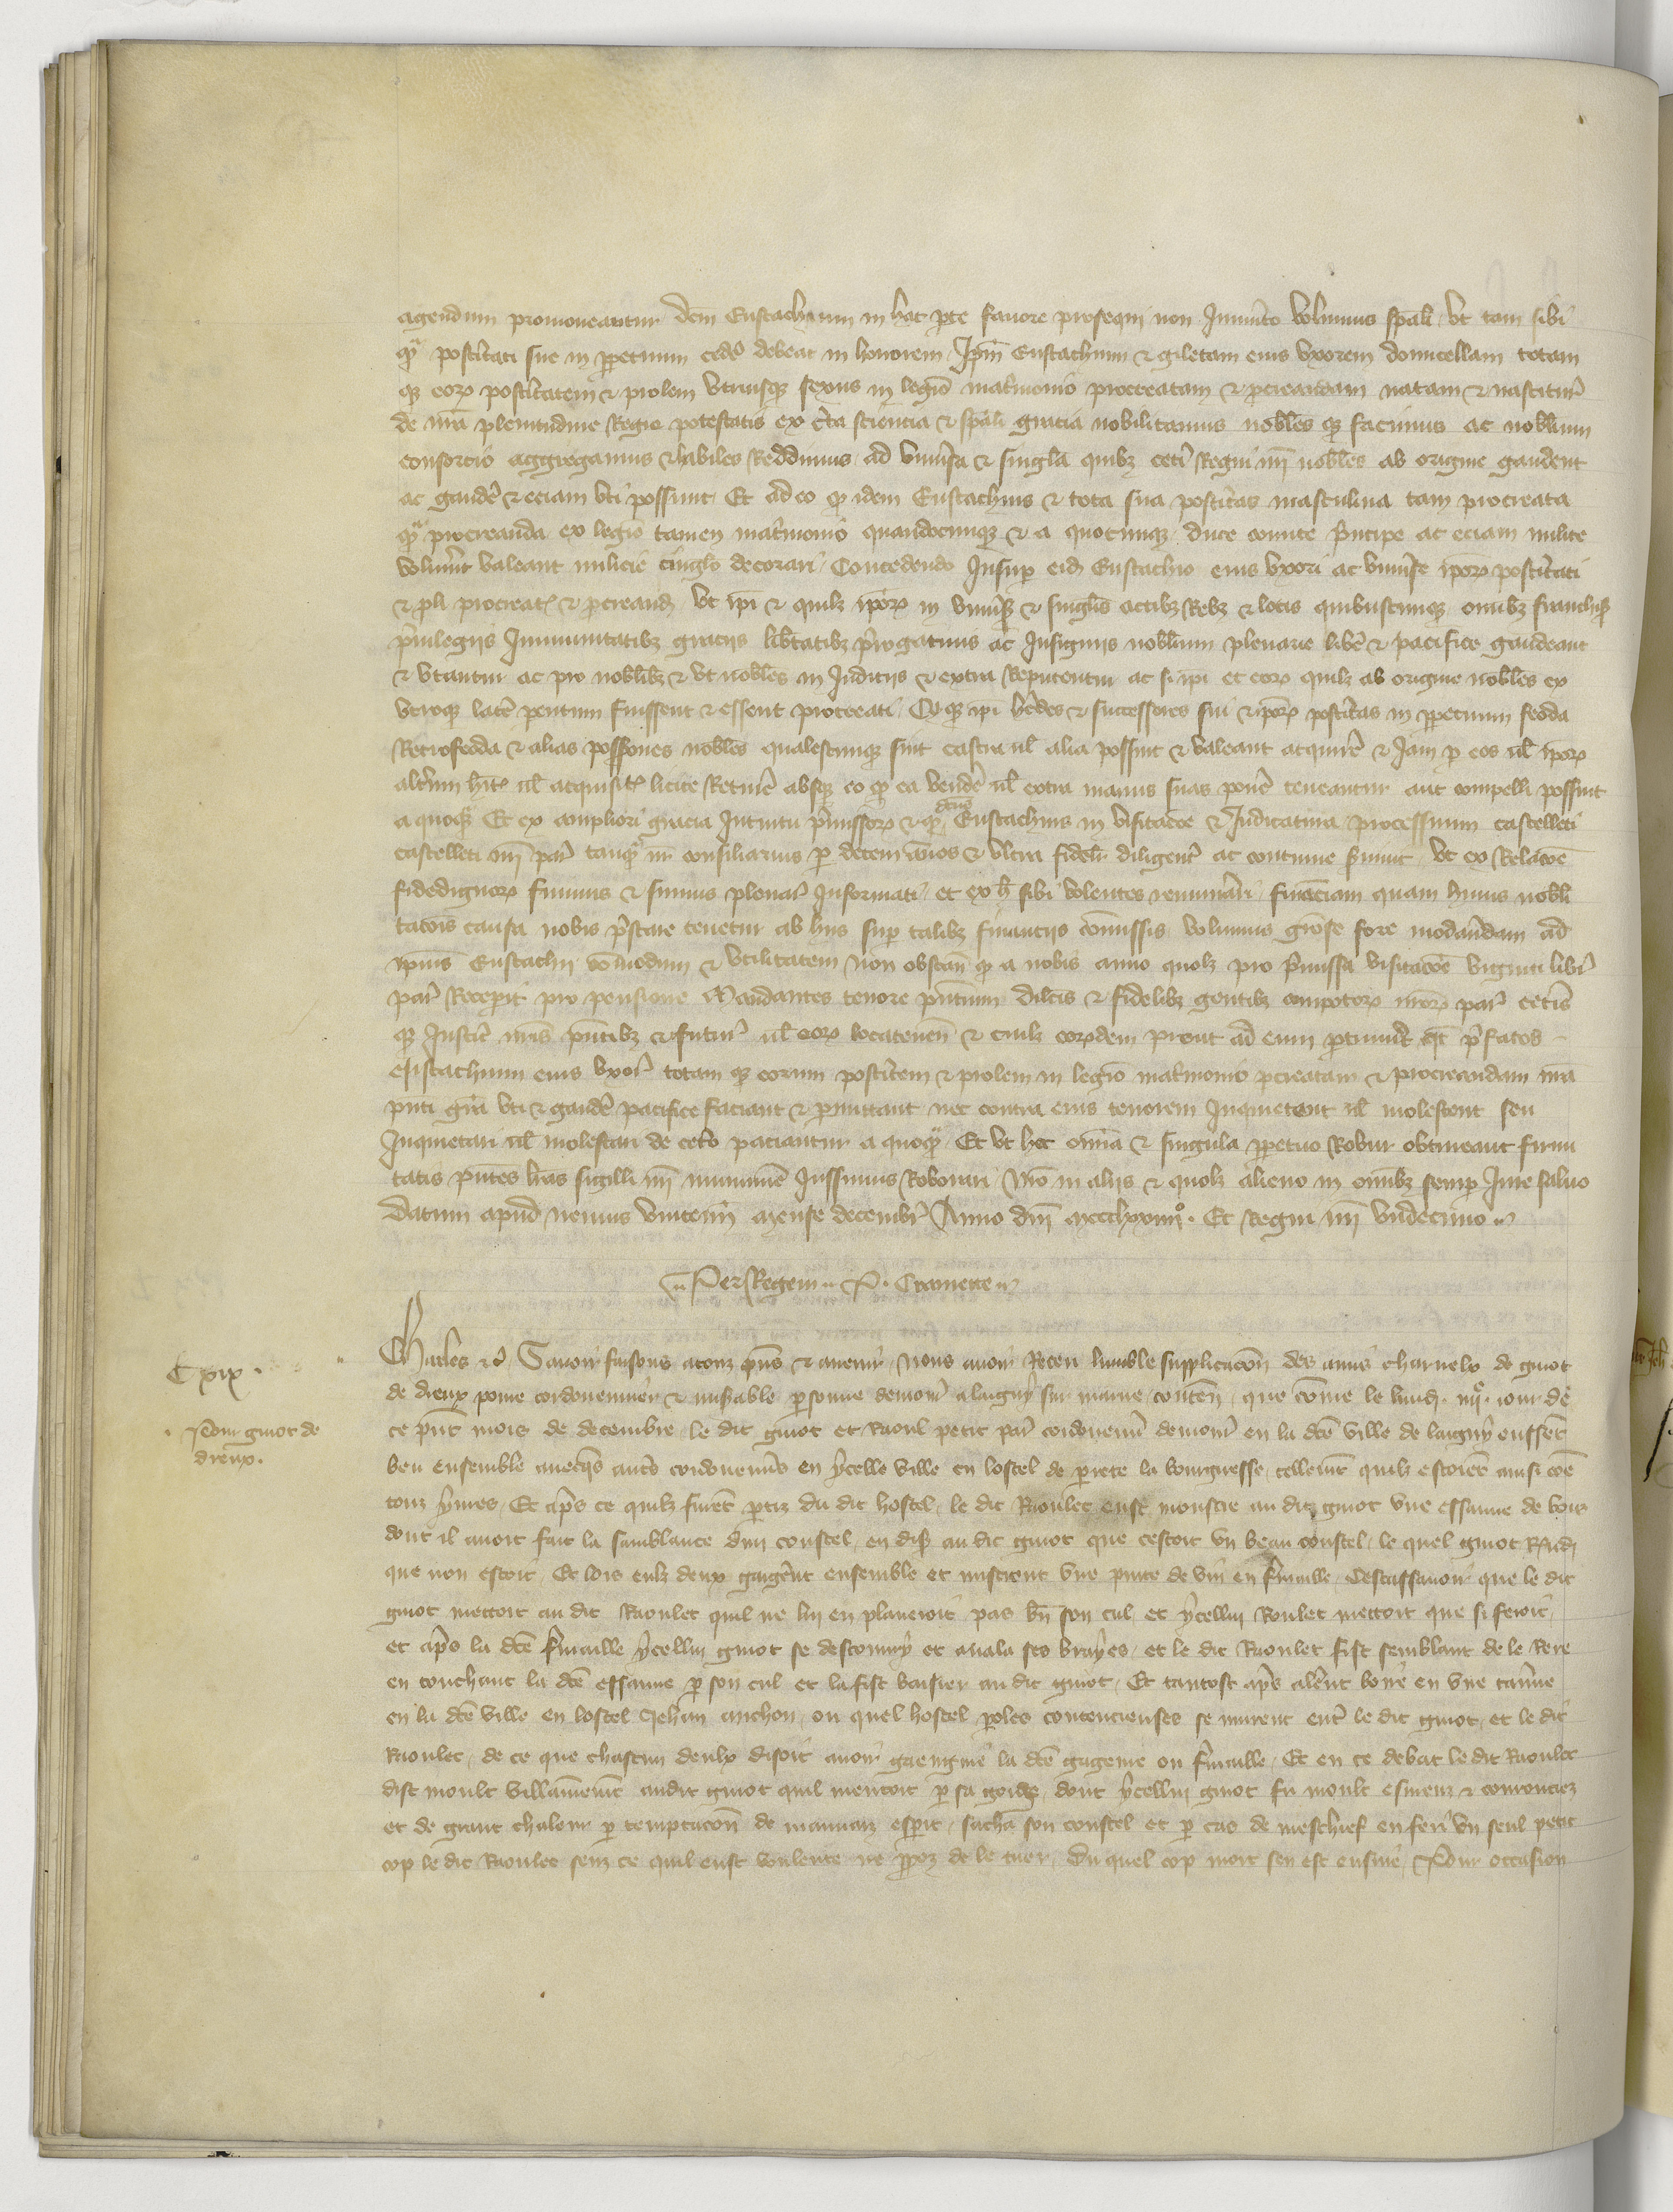 agendum promoveantur dcm Eustachium in hac pte favore prosequi non Inmerito volumus spali vt tam sibi
qm posteritati sue in ppetuum cedere debeat in honorem Ipm Eustachium & giletam eius vxorem domicellam totam
que eorum posteritatem & prolem vtriusque sexus in legio matrimonio procreatam & pcreandam natam & nascitur
de nra plenitudine Regie potestatis ex certa sciencia & spali gracia nobilitamus nobiles que facimus ac nobilium
consorcio aggregamus & habiles Reddimus ad vniversa & singla quibz ceti Regni nri nobles ab origine gaudent
ac gaudere & eciam vti possunt Et ad eo q idem Eustachius & tota sua posteritas masculina tam procreata
qm procreanda ex legio tamen matrimonio quandocunque & a quocunque duce comite principe ac eciam milite
voluerint valeant milicie cinglo decorari Concedendo Insup eidem Eustachio eius vxori ac vniverse iporum posteritati
& pli procreate & pcreande vt ipi & quilz iporum in vniversis & singlis actibz Rebz & locis quibuscunque omibz franchisiis
privilegiis Inmunitatibz graciis libtatibz prerogativis ac Insigniis nobilium plenarie libere & pacifice gaudeant
& vtantur ac pro noblibz & vt nobles in Iudiciis & extra Reputentur ac si ipi et eorum quilz ab origine nobles ex
vtroque latere pentum fuissent & essent procreati Et que ipi heredes & successores sui & iporum posteritas in ppetuum feoda
Retrofeoda & alias possiones nobles qualescunque sint castra vl alia possint & valeant acquirere & Iam p eos vl iporum
alterum hite vl acquisite licite Retinere absque eo q ea vendere vl extra manus suas ponere teneantur aut compelli possint
a quoque Et ex ampliori gracia Intuitu premissorum & q dcus Eustachius in visitacoe & Iudicatura processuum castelleti
castelleti nri par tanquam nr consiliarius p decem annos & vltra fideli diligenter ac continue servivit vt ex Relacoe
fidedignorum fuimus & sumus plenar Informati et ex h sibi volentes remunerari financiam quam huius nobli
tacois causa nobis prestare tenetur ab hiis sup talibz financiis comissis volumus giose fore modandam ad
ipius Eustachii comodum & vtilitatem Non obstan q a nobis anno quolz pro premissa visitacoe viginti libr
par Receperit pro pensione Mandantes tenore pntium dilcis & fidelibz gentibz compotorum nrorum par ceteris
que Iustic nris pntibz & futur vl eorum locatenen & cuilz eorumdem prout ad eum ptinuerit qt prefatos
eustachium eius vxor totam que eorum posteritem & prolem in legio matrimonio pcreatam & procreandam nra
pnti gra vti & gaudere pacifice faciant & pmittant nec contra eius tenorem Inquietent vl molestent seu
Inquietari vl molestari de cetero paciantur a quoque Et vt hec omia & singula ppetuo Robur obtineant firmi
tatis pntes lras sigilli nri munimine Iussimus Roborari Nro in aliis & quolz alieno in omibz semp Iure salvo
Datum apud nemus vincennar mense decembr Anno dni mccclxxiiiio. Et Regni nri vndecimo
Per Regem. P. Cramette
Cxix.
Pour guiot de
dreux.
Charles &c Savoir faisons a touz pns & avenir Nous avoir Receu humble supplicacon des amis charnelx de guiot
de dreux povre cordouennier & miserable psonne demour a laigny sur marne conten que come le lundi iiije iour de
ce pnt mois de decembre le dit guiot et Raoul petit par cordouenn demour en la dce ville de laigny eussent
beu ensemble avecques autres cordouenns en ycelle ville en lostel de perrete la bourguesse tellemt quilz estoient ainsi coe
touz yvres Et apres ce quilz furet ptiz du dit hostel le dit Raoulet eust monstre au dit guiot vne essanne de bois
dont il avoit fait la samblance dun coustel en dis au dit guiot que cestoit vn beau coustel le quel guiot Respondi
que non estoit Et lors eulz deux gagerent ensemble et mistrent vne pinte de vin en fermaille Cestassavoir que le dit
guiot mettoit au dit Raoulet quil ne lui en planeroit pas bn son cul et ycellui Roulet mettoit que si feroit
et apres la dce fermaille ycellui guiot se descouvry et avala ses brayes et le dit Raoulet fist semblant de le Rere
en touchant la dce essanne p son cul et la fist baisier au dit guiot Et tantost apres alerent boire en vne taverne
en la dce ville en lostel Jehan anchon ou quel hostel poles contencieuses se murent entre le dit guiot et le dit
Raoulet de ce que chascun deulx disoit avoir gaengnie la dce gageure ou fermaille Et en ce debat le dit Raoulet
dist moult villainemt audit guiot quil mentoit p sa gorge dont ycellui guiot fu moult esmeuz & courouciez
et de grant chaleur p temptacon de mauvaiz esperit sacha son coustel et p cas de meschief en feri vn seul petit
cop le dit Raoulet senz ce quil eust voulente ne ppoz de le tuer Du quel cop mort sen est ensuie Pour occasion